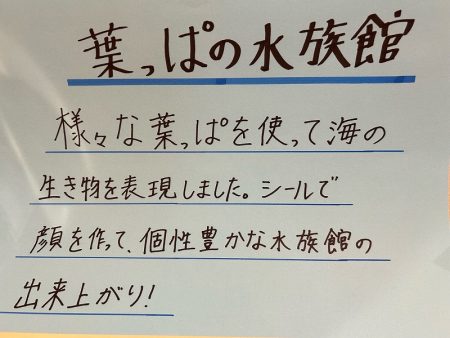 葉っぱの水族館
様々な葉っぱを使って海の
生き物を表現しました。シールで
顔を作って、個性豊かな水族館の
出来上がり!